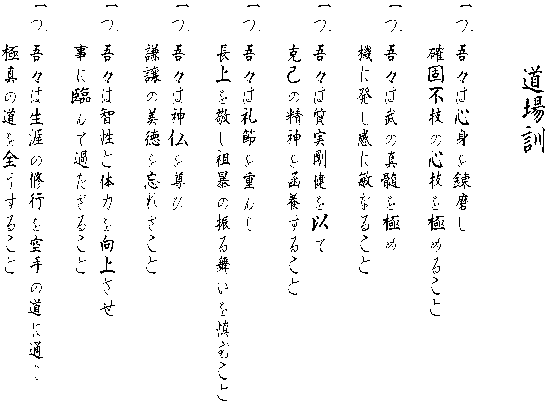 道場訓
一つ、吾々は心身を錬磨し
確固不抜の心技を極めること
一つ、吾々は武の真髄を極め
機に発し感に敏なること
一つ、吾々は質実剛健を以て
克己の精神を涵養すること
一つ、吾々は礼節を重んじ
長上を敬し粗暴の振る舞いを慎むこと
一つ、吾々は神仏を尊び
謙譲の美徳を忘れざること
一つ、吾々は智性と体力を向上させ
事に臨んで過たざること
一つ、吾々は生涯の修行を空手の道に通じ
極真の道を全うすること